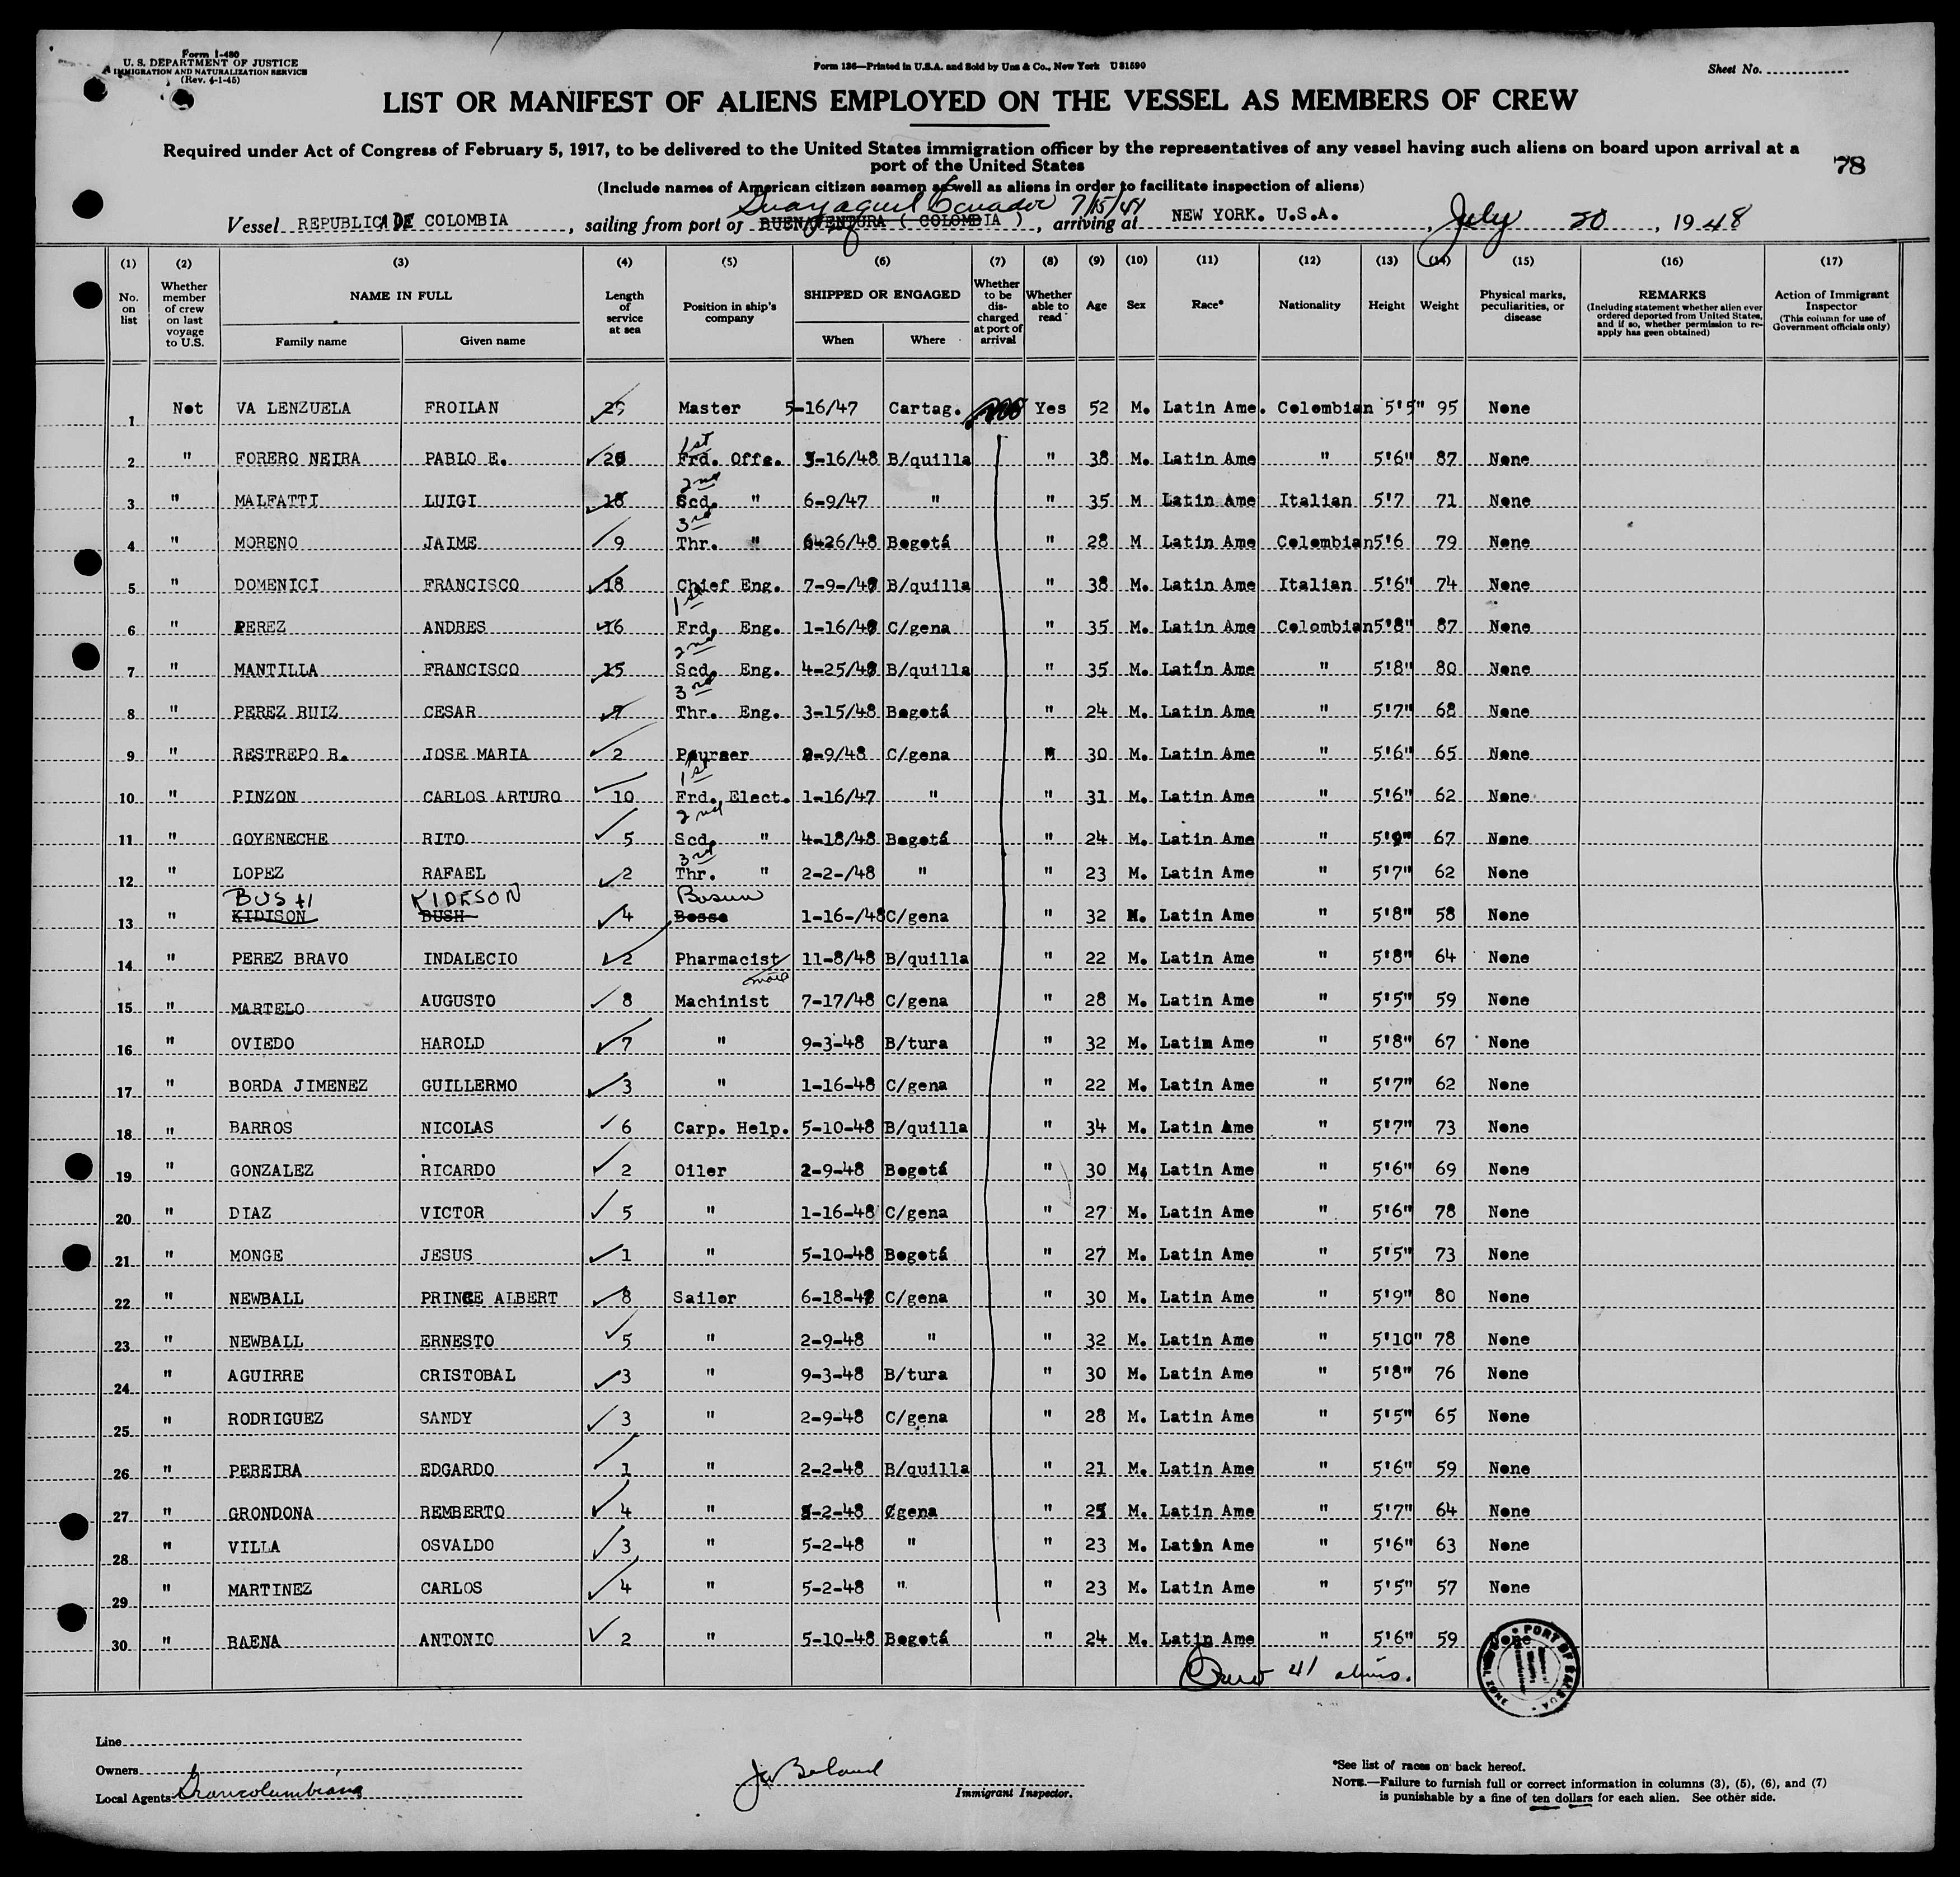 Form I-480
U. S. DEPARTMENT OF JUSTICE
IMMIGRATION AND NATURALIZATION SERVICE
(Rev. 4-1-45)
Form 136—Printed in U.S.A. and Sold by Unz & Co., New York U 81590
Sheet No.
LIST OR MANIFEST OF ALIENS EMPLOYED ON THE VESSEL AS MEMBERS OF CREW
Required under Act of Congress of February 5, 1917, to be delivered to the United States immigration officer by the representatives of any vessel having such aliens on board upon arrival at a
port of the United States
78
(Include names of American citizen seamen as well as aliens in order to facilitate inspection of aliens)
Guayaquil Ecuador 7/15/48
Vessel REPUBLICA DE COLOMBIA, sailing from port of BUENAVENTURA ( COLOMBIA ), arriving at NEW YORK. U.S.A., July 20, 1948
(1) (2) (3) (4) (5) (6) (7) (8) (9) (10) (11) (12) (13) (14) (15) (16) (17)
No. on list Whether member of crew on last voyage to U.S. NAME IN FULL Family name Given name Length of service at sea Position in ship's company SHIPPED OR ENGAGED When Where Whether to be discharged at port of arrival Whether able to read Age Sex Race* Nationality Height Weight Physical marks, peculiarities, or disease REMARKS (Including statement whether alien ever ordered deported from United States, and if so, whether permission to reapply has geen obtained) Action of Immigrant Inspector (This column for use of Government officials only)
1 Not VA LENZUELA FROILAN 25 Master 5-16/47 Cartag. Yes 52 M. Latin Ame. Colombian 5'5" 95 None
1st
2 " FORERO NEIRA PABLO E. 20 Frd. Offc. 3-16/48 B/quilla " 38 M. Latin Ame " 5'6" 87 None
2nd
3 " MALFATTI LUIGI 18 Scd. " 6-9/47 " " 35 M Latin Ame Italian 5'7 71 None
3rd
4 " MORENO JAIME 9 Thr. " 6-26/48 Bogotá " 28 M Latin Ame Colombian 5'6 79 None
5 " DOMENICI FRANCISCO 18 Chief Eng. 7-9-/48 B/quilla " 38 M. Latin Ame Italian 5'6" 74 None
1st
6 " PEREZ ANDRES 16 Frd. Eng. 1-16/48 C/gena " 35 M. Latin Ame Colombian 5'8" 87 None
2nd
7 " MANTILLA FRANCISCO 15 Scd. Eng. 4-25/48 B/quilla " 35 M. Latin Ame " 5'8" 80 None
3rd
8 " PEREZ RUIZ CESAR 7 Thr. Eng. 3-15/48 Bogotá " 24 M. Latin Ame " 5'7" 68 None
9 " RESTREPO R. JOSE MARIA 2 Pourser 2-9/48 C/gena " 30 M. Latin Ame " 5'6" 65 None
1st
10 " PINZON CARLOS ARTURO 10 Frd. Elect. 1-16/47 " " 31 M. Latin Ame " 5'6" 62 None
2nd
11 " GOYENECHE RITO 5 Scd. " 4-18/48 Bogotá " 24 M. Latin Ame " 5'9" 67 None
3rd
12 " LOPEZ RAFAEL 2 Thr. " 2-2-/48 " " 23 M. Latin Ame " 5'7" 62 None
BUSH KIDESON Bosun
13 " KIDISON BUSH 4 Bosse 1-16-/48 C/gena " 32 M. Latin Ame " 5'8" 58 None
14 " PEREZ BRAVO INDALECIO 2 Pharmacist 11-8/48 B/quilla " 22 M. Latin Ame " 5'8" 64 None
15 " MARTELO AUGUSTO 8 Machinist 7-17/48 C/gena " 28 M. Latin Ame " 5'5" 59 None
16 " OVIEDO HAROLD 7 " 9-3-48 B/tura " 32 M. Latin Ame " 5'8" 67 None
17 " BORDA JIMENEZ GUILLERMO 3 " 1-16-48 C/gena " 22 M. Latin Ame " 5'7" 62 None
18 " BARROS NICOLAS 6 Carp. Help. 5-10-48 B/quilla " 34 M. Latin Ame " 5'7" 73 None
19 " GONZALEZ RICARDO 2 Oiler 2-9-48 Bogotá " 30 M. Latin Ame " 5'6" 69 None
20 " DIAZ VICTOR 5 " 1-16-48 C/gena " 27 M. Latin Ame " 5'6" 78 None
21 " MONGE JESUS 1 " 5-10-48 Bogotá " 27 M. Latin Ame " 5'5" 73 None
22 " NEWBALL PRINCE ALBERT 8 Sailor 6-18-48 C/gena " 30 M. Latin Ame " 5'9" 80 None
23 " NEWBALL ERNESTO 5 " 2-9-48 " " 32 M. Latin Ame " 5'10" 78 None
24 " AGUIRRE CRISTOBAL 3 " 9-3-48 B/tura " 30 M. Latin Ame " 5'8" 76 None
25 " RODRIGUEZ SANDY 3 " 2-9-48 C/gena " 28 M. Latin Ame " 5'5" 65 None
26 " PEREIRA EDGARDO 1 " 2-2-48 B/quilla " 21 M. Latin Ame " 5'6" 59 None
27 " GRONDONA REMBERTO 4 " 5-2-48 C/gena " 25 M. Latin Ame " 5'7" 64 None
28 " VILLA OSVALDO 3 " 5-2-48 " " 23 M. Latin Ame " 5'6" 63 None
29 " MARTINEZ CARLOS 4 " 5-2-48 " " 23 M. Latin Ame " 5'5" 57 None
30 " BAENA ANTONIO 2 " 5-10-48 Bogotá " 24 M. Latin Ame " 5'6" 59 None
41 aliens.
PORT OF BALBOA CANAL ZONE
Line
Owners
Local Agents Grancolombiana
Immigrant Inspector.
*See list of races on back hereof.
NOTE.—Failure to furnish full or correct information in columns (3), (5), (6), and (7)
is punishable by a fine of ten dollars for each alien. See other side.